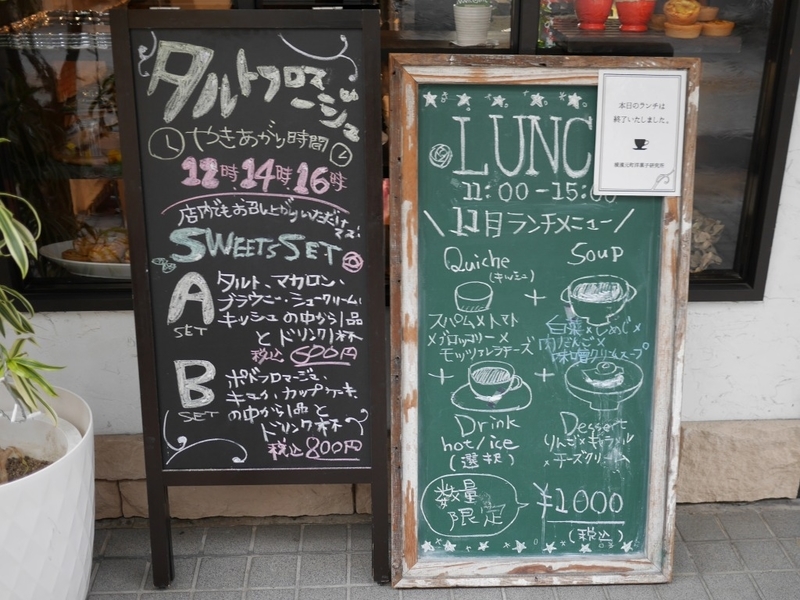 タルトフロマージュ
やきあがり時間
12時.14時.16時
店内でもお召し上がりいただけマス!
SWEETS SET
A SET
タルト、マカロン、
ブラウニー・シュークリーム・
キッシュの中から1品
とドリンク1杯
税込600円
B SET
ポドフロマージュ、
キューカ、カップケーキ、
の中から1品と
ドリンク1杯
税込800円
LUNC
11:00-15:00
\11月ランチメニュー/
Quiche
(キッシュ)
スパム×トマト
×ブロッコリー×
モッツァレラチーズ
+
Soup
白菜×しめじ×
肉だんご×
味噌クリームスープ
+
Drink
hot/ice
(選択)
+
Dessert
りんご×キャラメル
×チーズクリーム
数量
限定
¥1000
(税込)
本日のランチは
終了いたしました。
横濱元町洋菓子研究所